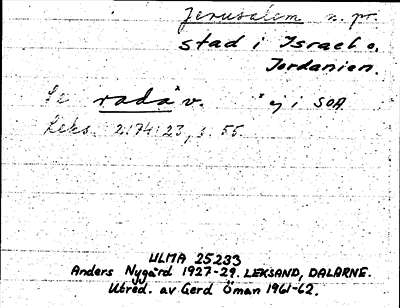 Jerusalem n. pr.
stad i Israel o.
Jordanien.
Se rada v. ej i SOA
Leks. 2174:23, s. 55.
ULMA 25233
Anders Nygård 1927-29. LEKSAND, DALARNE.
Utred. av Gerd Öman 1961-62.